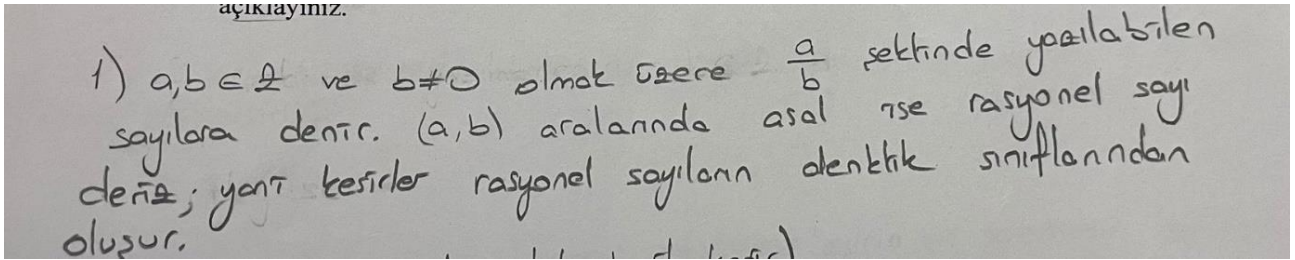 açıklayınız.
1) a,b ∈ Z ve b≠0 olmak üzere a/b şeklinde yazılabilen
sayılara denir. (a,b) aralarında asal ise rasyonel sayı
deriz; yani kesirler rasyonel sayıların denklik sınıflarından
oluşur.